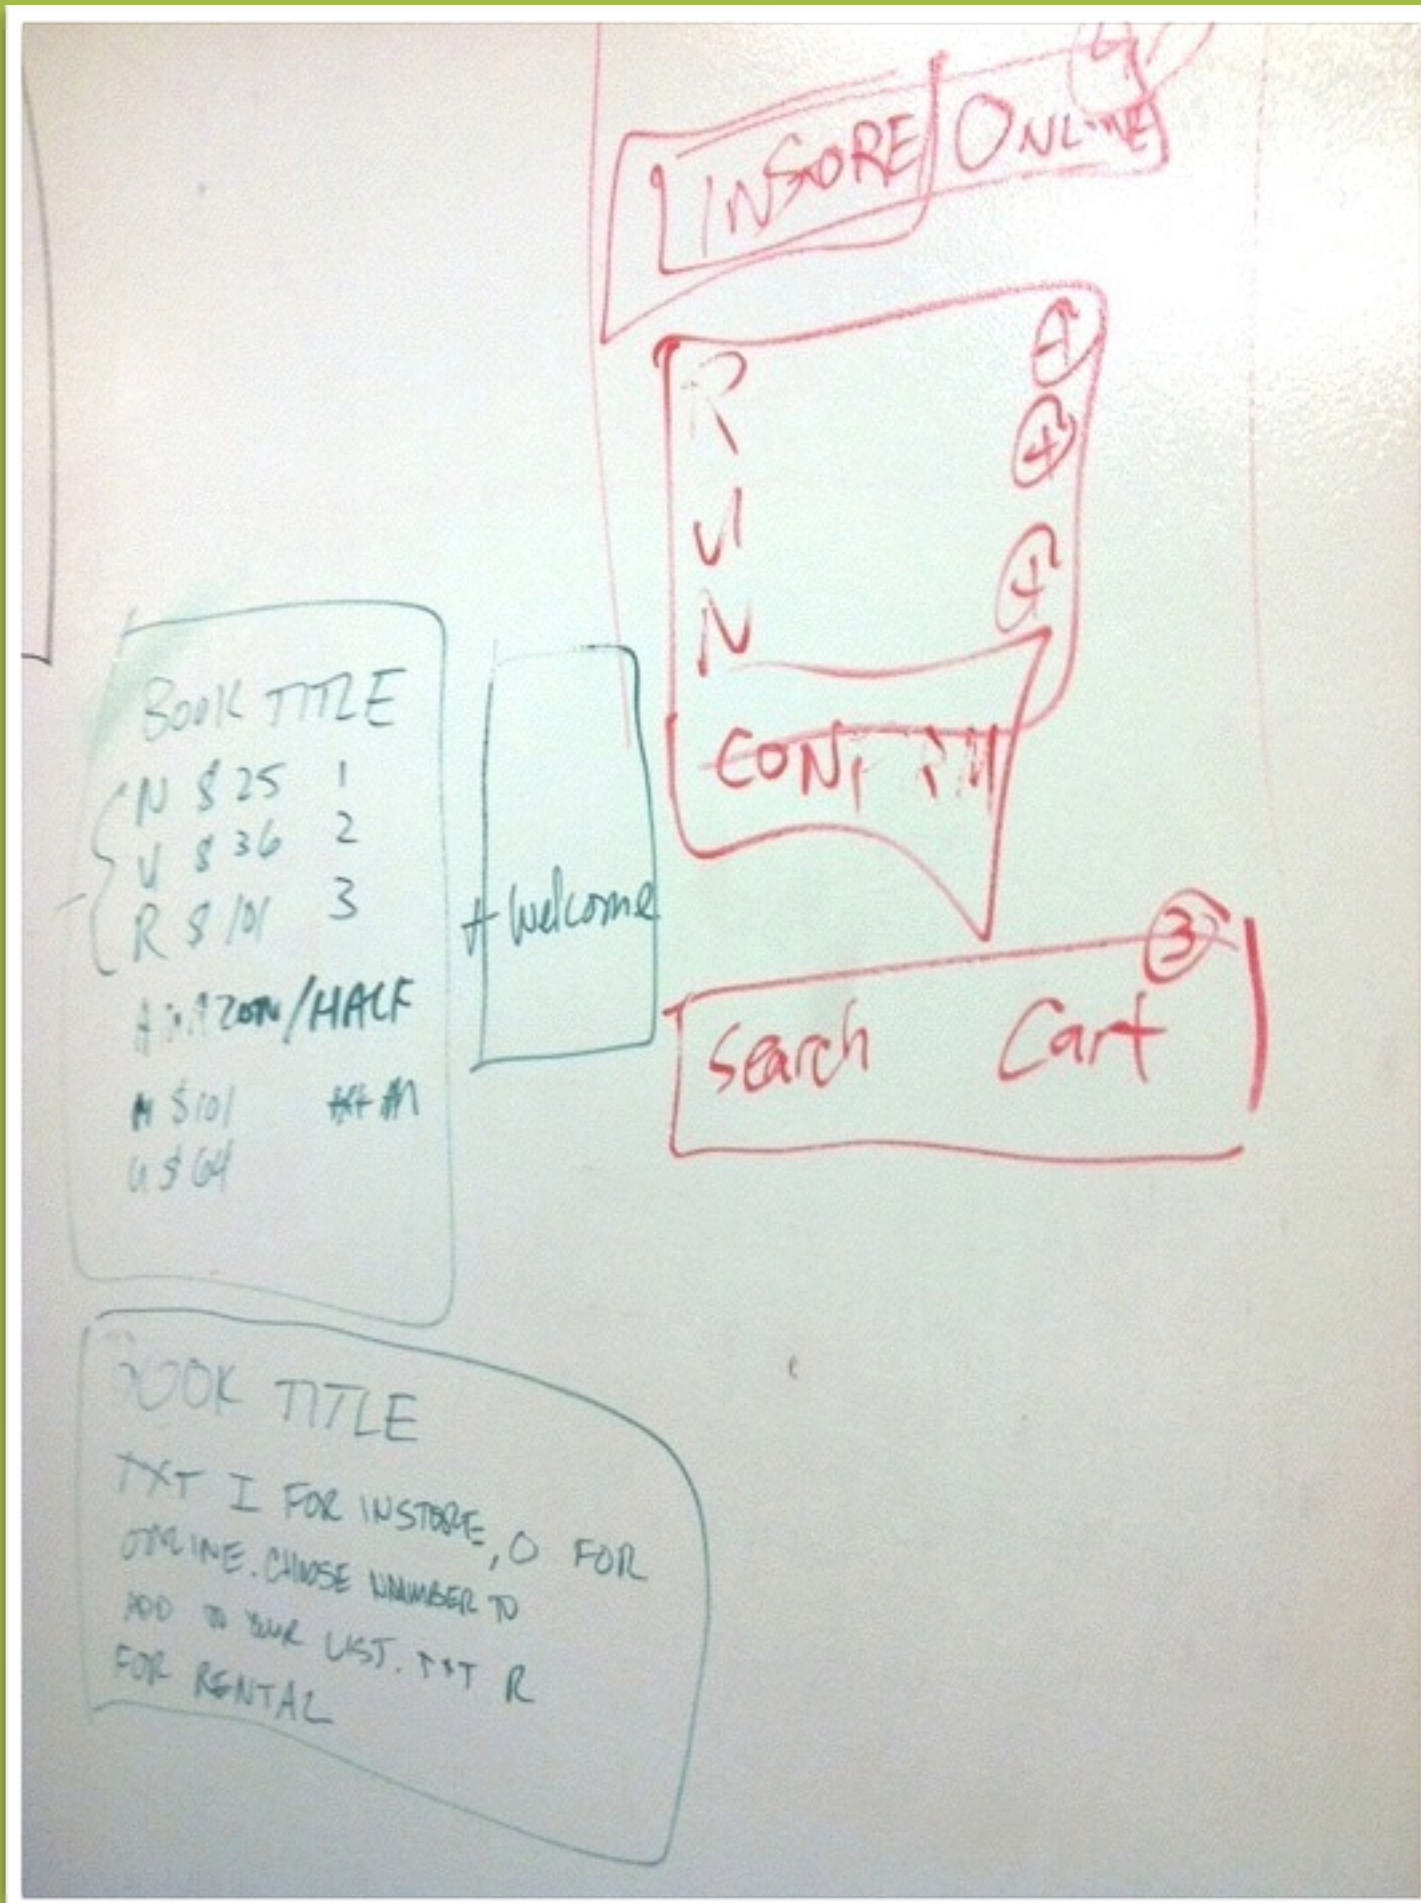 INSORE ONLINE
R
U +
N +
CONFIRM
3
Search Cart
BOOK TITLE
N $ 25 1
U $ 36 2
R $ 101 3
AMAZON/HALF
N $101
U $64
+ Welcome
BOOK TITLE
TXT I FOR INSTORE, O FOR
ONLINE. CHOOSE NUMBER TO
ADD TO YOUR LIST. TXT R
FOR RENTAL